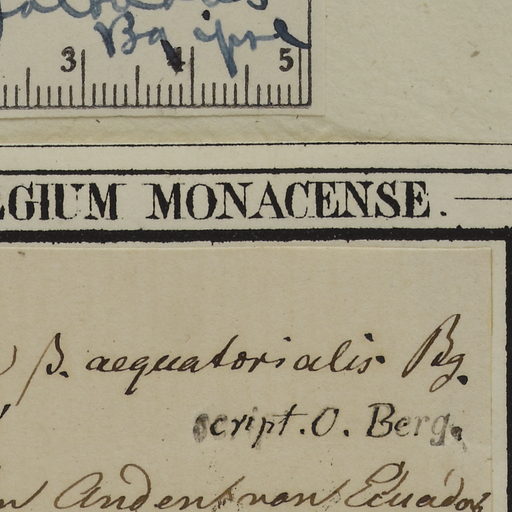 Bg ipse
3 4 5
EGIUM MONACENSE.
β. aequatorialis Bg.
script. O. Berg.
Anden von Ecuador